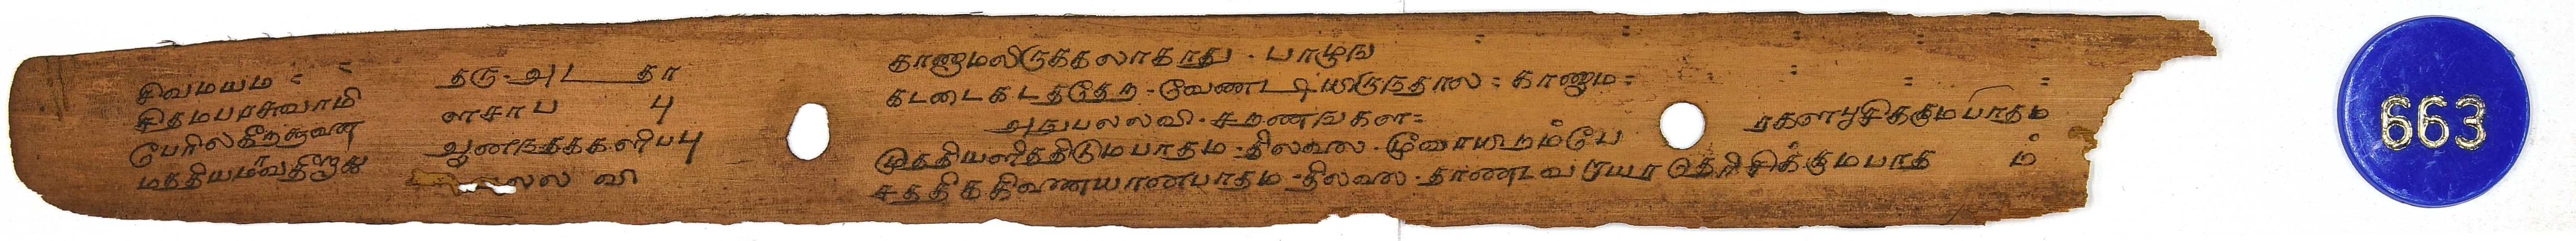 சிவமயம
சிதமபரசுவாமி
பேரில கீறததன
மததியமாவதி
தரு - அட தா
ளசாப பு
ஆனநதககளிபபு
லல வி
காணாமலிருககலாகாது - பாழுங
கடடை கடததேற - வேணடியிருநதால = காணாம =
அநுபலலவி - சரணஙகள =
முததியளிததிடும பாதம - திலலை - மூவாயிரம் பே
ரகள பூசிககும பாதம
சததிககிணையானபாதம - திலலை - தாணடவ ரு தெரிசிக்கும பாத ம்
663